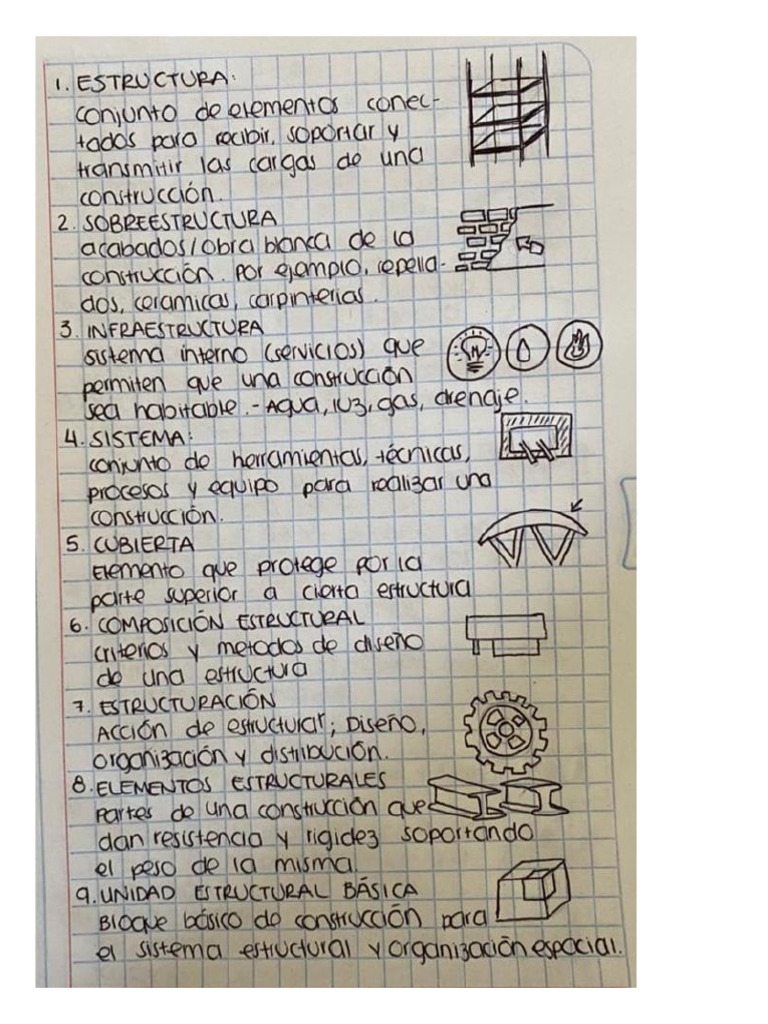 1. ESTRUCTURA:
conjunto de elementos conec-
tados para recibir, soportar y
transmitir las cargas de una
construcción.
2. SOBREESTRUCTURA
acabados/obra blanca de la
construcción. Por ejemplo, repella-
dos, ceramicas, carpinterias.
3. INFRAESTRUCTURA
sistema interno (servicios) que
permiten que una construcción
sea habitable.- Agua, luz, gas, drenaje.
4. SISTEMA:
conjunto de herramientas, técnicas,
procesos y equipo para realizar una
construcción.
5. CUBIERTA
Elemento que protege por la
parte superior a cierta estructura
6. COMPOSICIÓN ESTRUCTURAL
criterios y metodos de diseño
de una estructura
7. ESTRUCTURACIÓN
Acción de estructurar; Diseño,
organización y distribución.
8. ELEMENTOS ESTRUCTURALES
Partes de una construcción que
dan resistencia y rigidez soportando
el peso de la misma
9. UNIDAD ESTRUCTURAL BÁSICA
Bloque básico de construcción para
el sistema estructural y organización espacial.